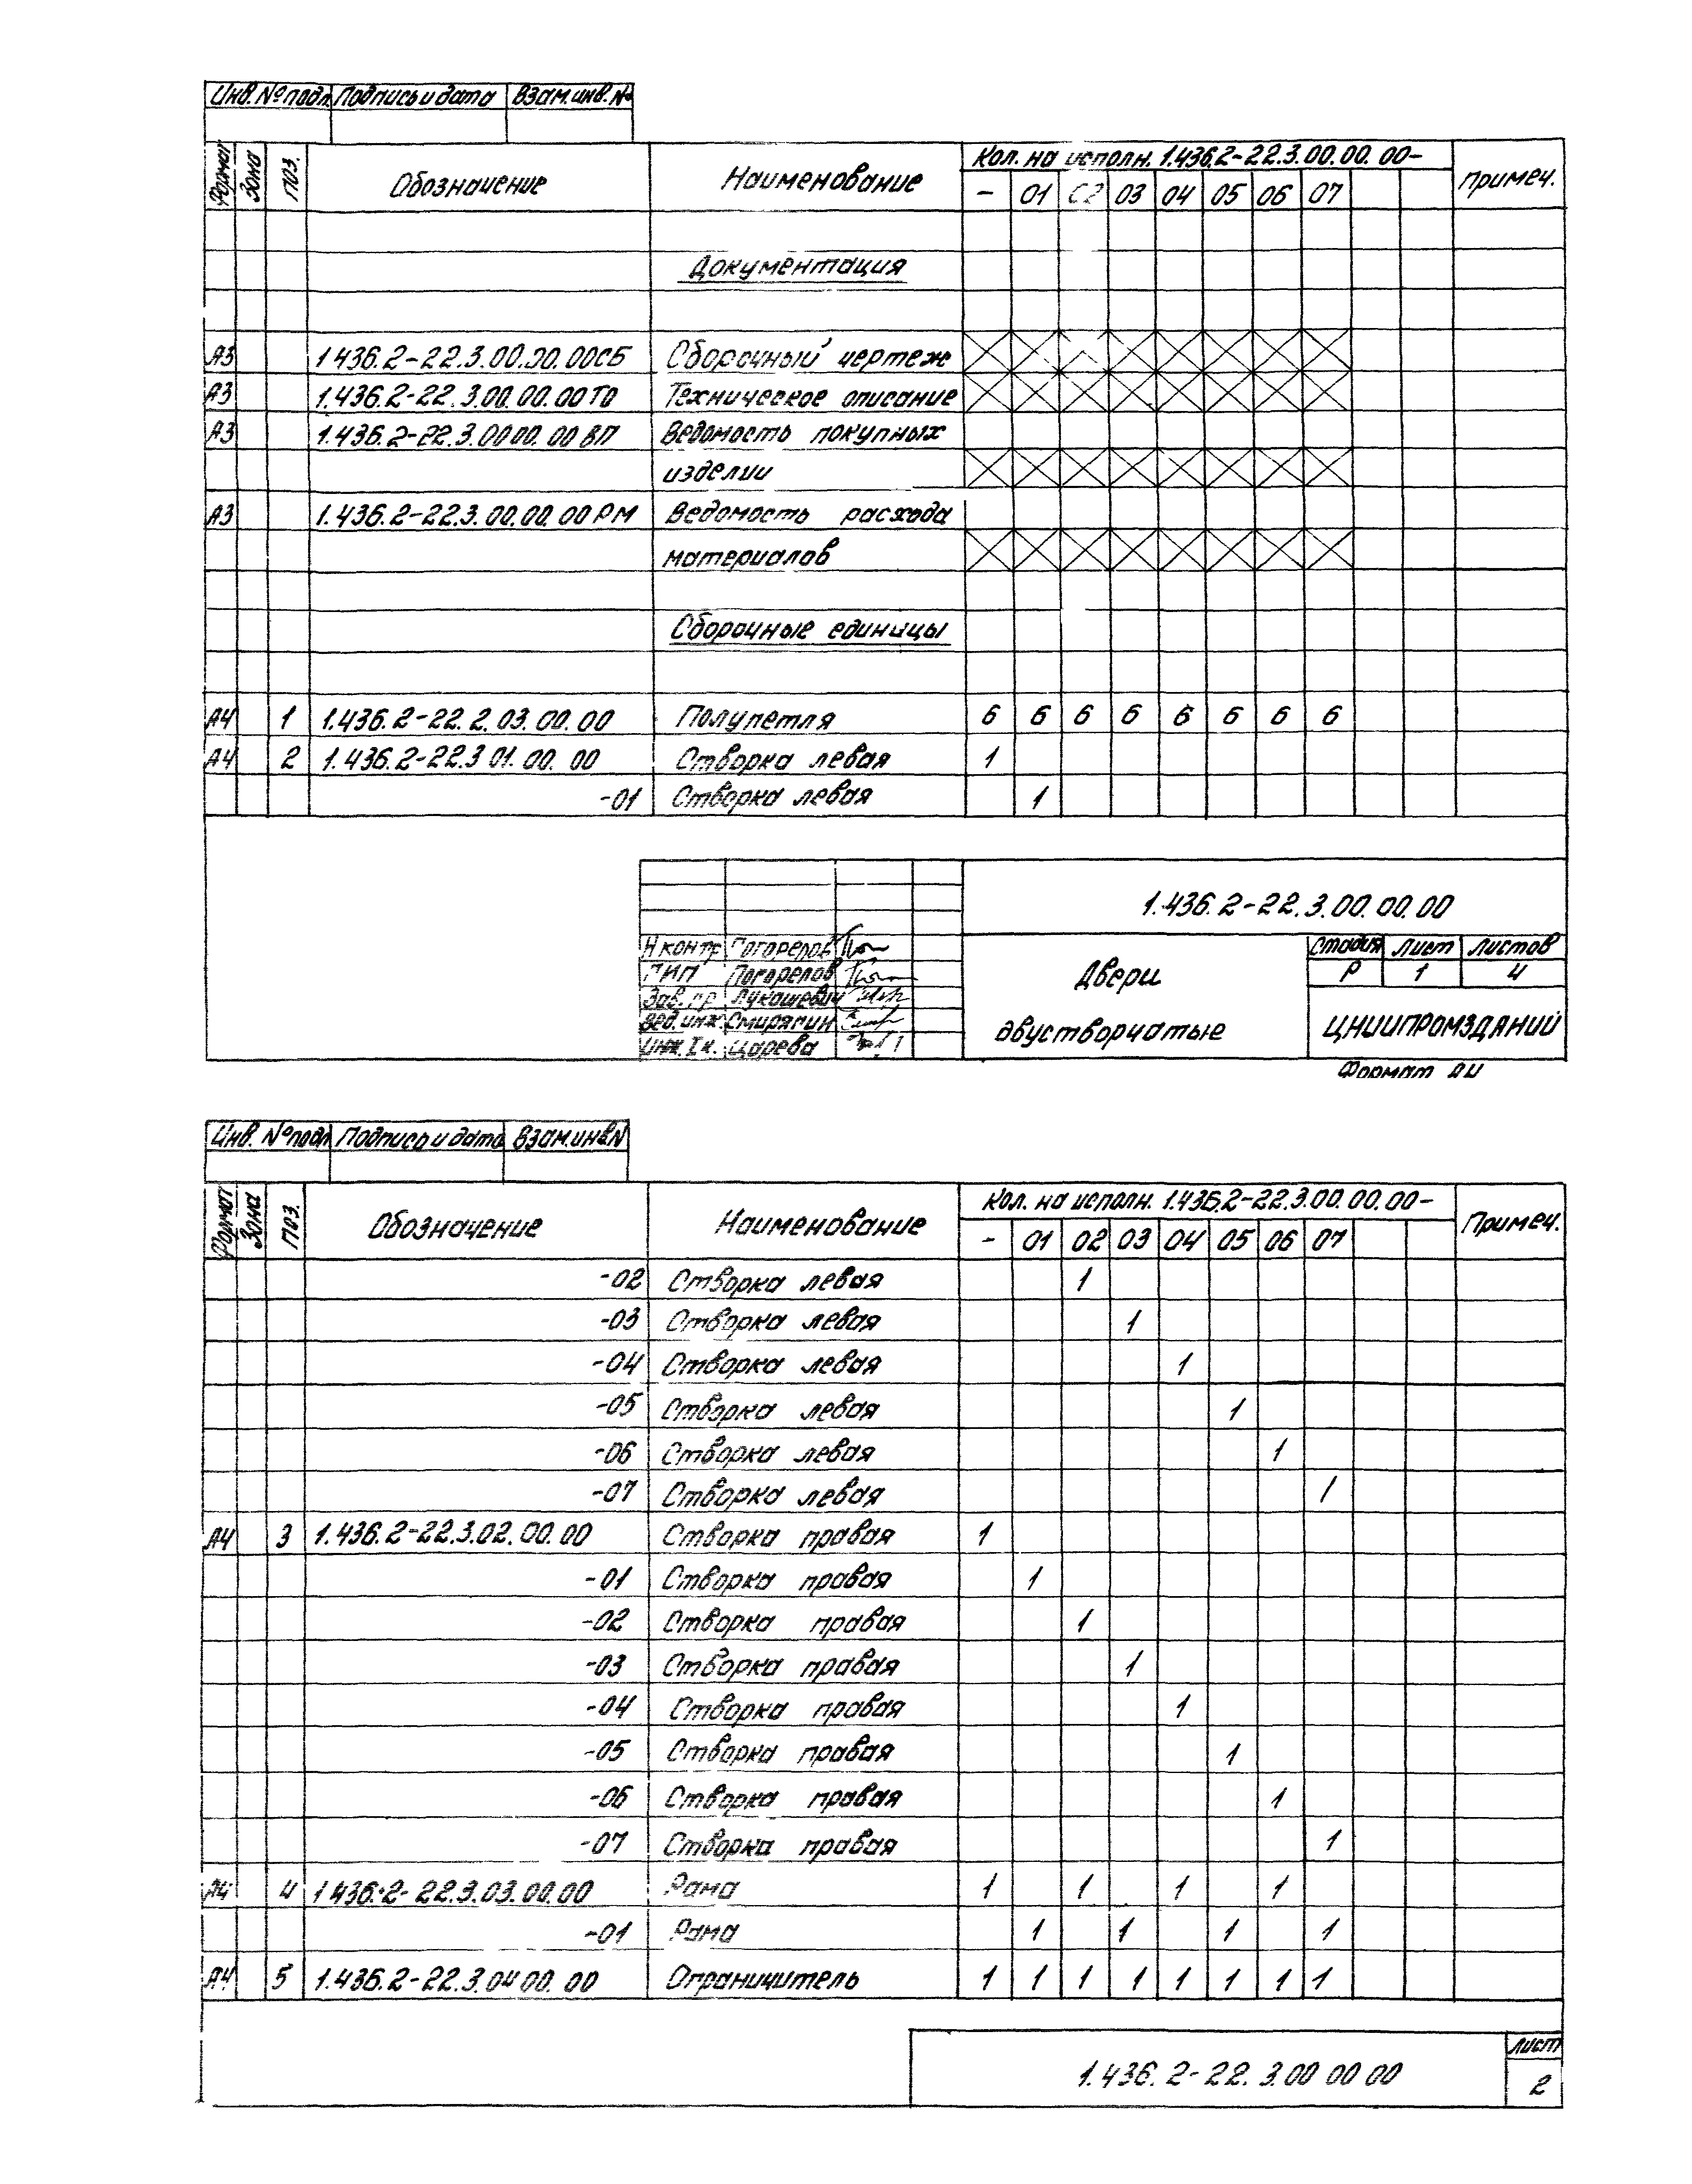 Инв. № подл. Подпись и дата Взам. инв. №
Формат Зона Поз. Обозначение Наименование Кол. на исполн. 1.436.2-22.3.00.00.00- Примеч.
- 01 02 03 04 05 06 07
Документация
А3 1.436.2-22.3.00.00.00СБ Сборочный чертеж
А3 1.436.2-22.3.00.00.00ТО Техническое описание
А3 1.436.2-22.3.00.00.00 ВП Ведомость покупных
изделии
А3 1.436.2-22.3.00.00.00 РМ Ведомость расхода
материалов
Сборочные единицы
А4 1 1.436.2-22.2.03.00.00 Полупетля 6 6 6 6 6 6 6 6
А4 2 1.436.2-22.3 01.00.00 Створка левая 1
-01 Створка левая 1
1.436.2-22.3.00.00.00
Н контр Погорелов
ГИП Погорелов
Зав. гр Лукашевич
Вед. инж Смирягин
Инж. I к. Царева
Двери
двустворчатые
Стадия Лист Листов
Р 1 4
ЦНИИПРОМЗДАНИЙ
Формат А4
Инв. № подл Подпись и дата Взам. инв. N
Формат Зона Поз. Обозначение Наименование Кол. на исполн. 1.436.2-22.3.00.00.00- Примеч.
- 01 02 03 04 05 06 07
-02 Створка левая 1
-03 Створка левая 1
-04 Створка левая 1
-05 Створка левая 1
-06 Створка левая 1
-07 Створка левая 1
А4 3 1.436.2-22.3.02.00.00 Створка правая 1
-01 Створка правая 1
-02 Створка правая 1
-03 Створка правая 1
-04 Створка правая 1
-05 Створка правая 1
-06 Створка правая 1
-07 Створка правая 1
А4 4 1.436.2-22.3.03.00.00 Рама 1 1 1 1
-01 Рама 1 1 1 1
А4 5 1.436.2-22.3.04 00.00 Ограничитель 1 1 1 1 1 1 1 1
1.436.2-22.3.00 00 00
Лист
2